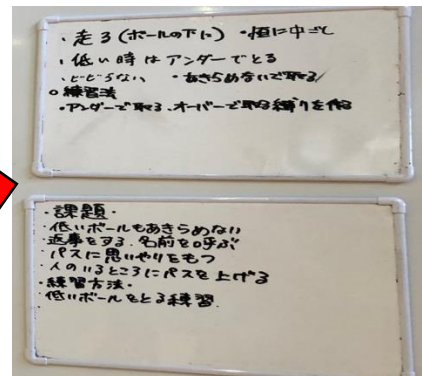 ・走る(ボールの下に) ・恒に中ごし
・低い時はアンダーでとる
・ビビらない ・あきらめないで取る
○練習法
・アンダーで取る、オーバーで取る縛りを作る
・課題・
・低いボールもあきらめない
・返事をする、名前を呼ぶ
・パスに思いやりをもつ
・人のいるところにパスを上げる
・練習方法・
・低いボールをとる練習.